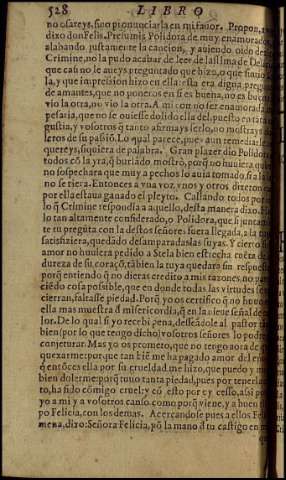 528 LIBRO
no osareys, sino pronunciarla en mi fauor. Propon,
dixo don Felis. Presumis Polidora de muy enamorados,
alabando justamente la cancion, y auiendo oido a
Crimine, no la pudo acabar de leer de lastima de
que casi no le aueys preguntado que hizo, o que sintio
la, y que impression hizo en ella: esta era digna pregun
de amantes, que no poneros en si es buena, no es buena
vio la otra, no vio la otra. A mi con no ser enamorada
pesaria, que no se ouiesse dolido ella del, puesto en ta
gustia, y vosotros q̃ tanto afirmays serlo, no mostrays
leros de su passiõ. Lo qual parece, pues aun remediarle
quereys, siquiera de palabra. Gran plazer dio Polidora
todos cõ la yra, q̃ burlãdo mostrò, porq̃ no huuiera
no sospechara que muy a pechos lo auia tomado, si a la
no se riera. Entonces a vna voz, vnos y otros dixeron
por ella estaua ganado el pleyto. Callando todos por
lo q̃ Crimine respondia a aquello, desta manera dixo.
lo tan altamente considerado, o Polidora, que si juntam
te su pregũta con la destos señores fuera llegada, a la tu
satisfiziera, quedãdo desamparadas las suyas. Y cierto si
amor no huuiera pedido a Stela bien estrecha cuẽta de
dureza de su coraçõ, tãbien la tuya quedara sin respuesta
porq̃ entiendo q̃ no dieras credito a mis razones, no pa
ciẽdo cosa possible, que en donde todas las virtudes se
cierran, faltasse piedad. Porq̃ yo os certifico q̃ no huuo
ella mas muestra d̃ misericordia, q̃ en la nieue señal de
lor. De lo qual si yo recebi pena, desseãdole al pastor
bien (por lo que tengo dicho) vosotros señores lo podreys
conjeturar. Mas yo os prometo, que no tengo aora de
quexarme: porque tan biẽ me ha pagado amor del
q̃ entõces ella por su crueldad me hizo, que puedo y
bien dolerme: porq̃ tuuo tanta piedad, pues por tenerla
to, ha sido cõmigo cruel: y cõ esto por
yo a mi y a vosotros canso como porq̃ viene, y a buen
po Felicia, con los demas. Acercandose pues a ellos Fel
mena, dixo: Señora Felicia, põ la mano ã tu castigo en